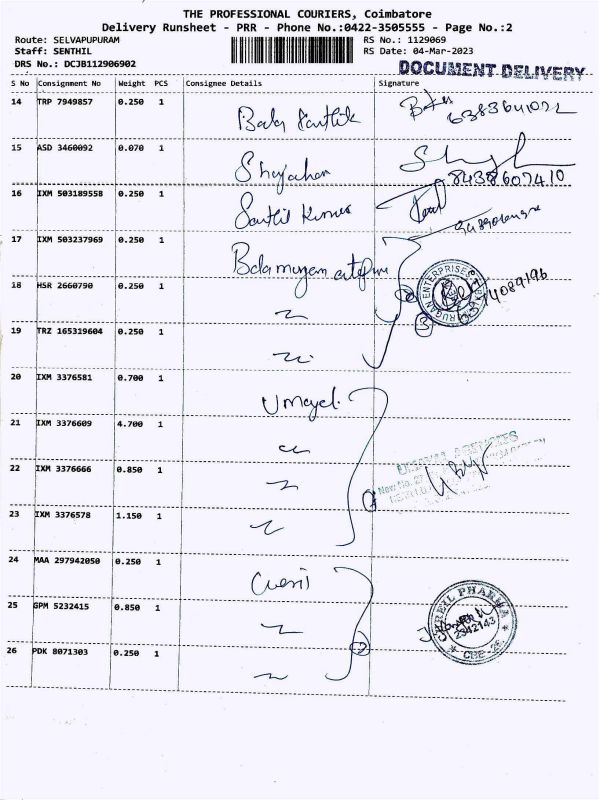 THE PROFESSIONAL COURIERS, Coimbatore
Delivery Runsheet - PRR - Phone No.:0422-3505555 - Page No.:2
Route: SELVAPUPURAM RS No.: 1129069
Staff: SENTHIL RS Date: 04-Mar-2023
DRS No.: DCJB112906902
DOCUMENT DELIVERY
S No Consignment No Weight PCS Consignee Details Signature
14 TRP 7949857 0.250 1
6383641072
15 ASD 3460092 0.070 1 Shajahan
8438607410
16 IXM 503189558 0.250 1 Senthil Kumar
17 IXM 503237969 0.250 1
18 HSR 2660790 0.250 1
19 TRZ 165319604 0.250 1
20 IXM 3376581 0.700 1 Umayal
21 IXM 3376609 4.700 1
22 IXM 3376666 0.850 1
23 IXM 3376578 1.150 1
24 MAA 297942050 0.250 1
25 GPM 5232415 0.850 1
PHARMA
2342143
26 PDK 8071303 0.250 1